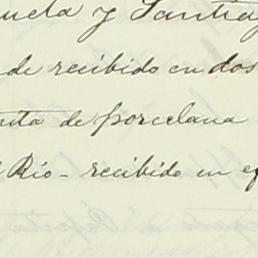 uela y Santiag
de recibido en dos
ita de porcelana
Rio - recibido en ef